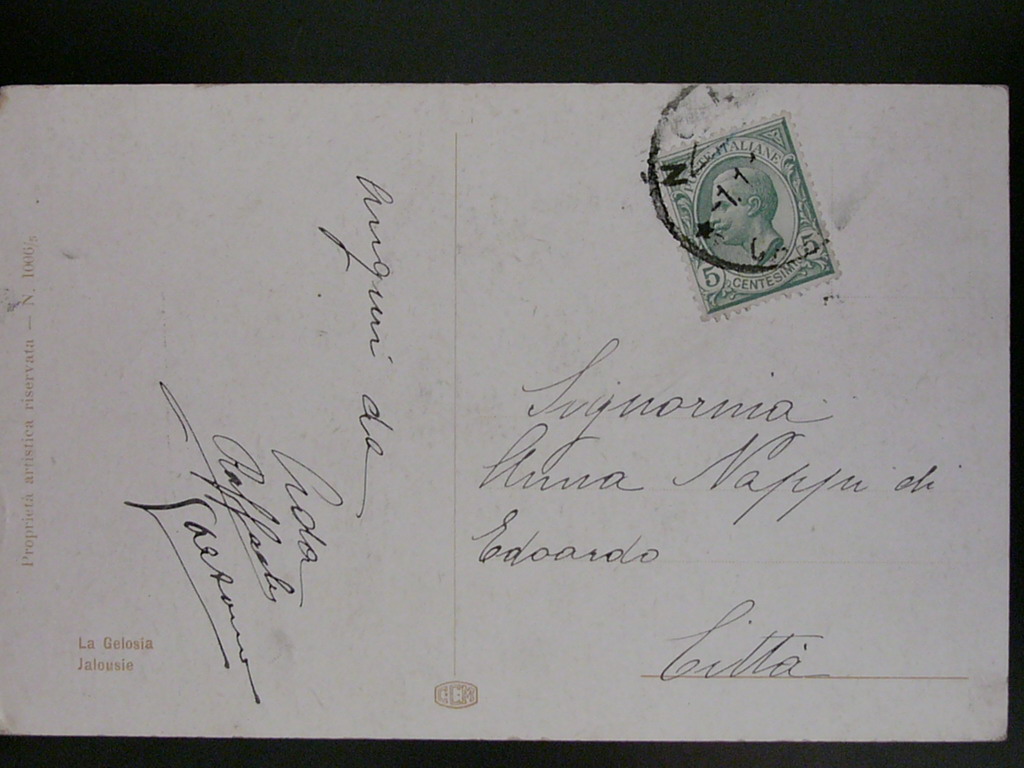 Proprietà artistica riservata — N. 1006/5
La Gelosia
Jalousie
Auguri da
Raffaele
Gaetano
CCM
ITALIANE
5
CENTESIMI
5
Signorina
Anna Nappi di
Edoardo
Città